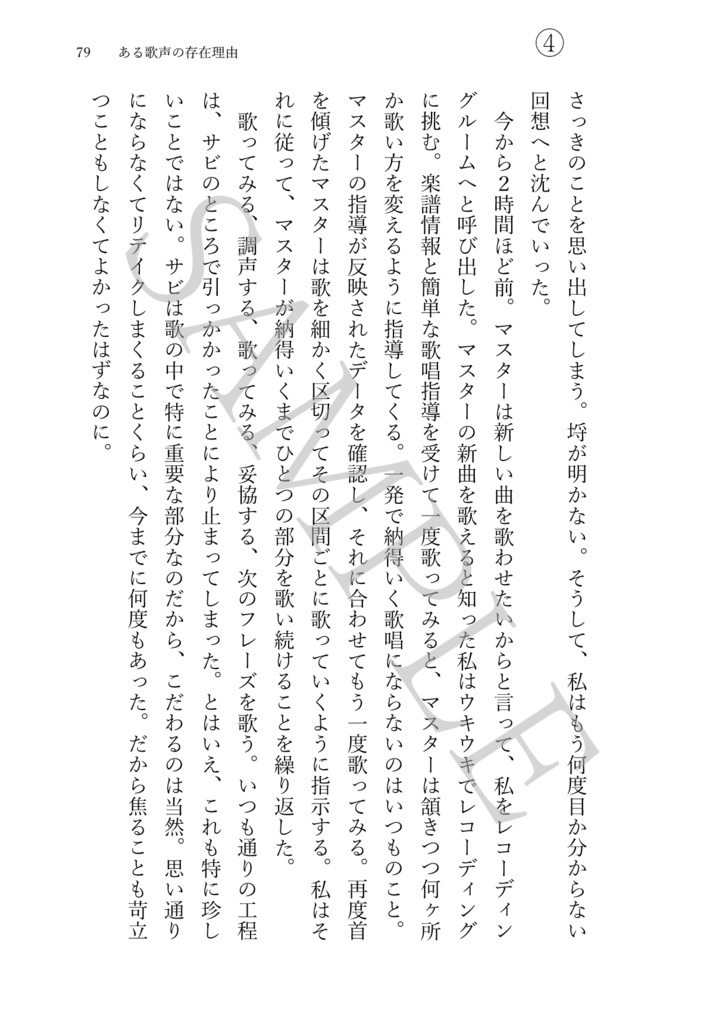 ④
79　ある歌声の存在理由
さっきのことを思い出してしまう。埒が明かない。そうして、私はもう何度目か分からない
回想へと沈んでいった。
　今から２時間ほど前。マスターは新しい曲を歌わせたいからと言って、私をレコーディン
グルームへと呼び出した。マスターの新曲を歌えると知った私はウキウキでレコーディング
に挑む。楽譜情報と簡単な歌唱指導を受けて一度歌ってみると、マスターは頷きつつ何ヶ所
か歌い方を変えるように指導してくる。一発で納得いく歌唱にならないのはいつものこと。
マスターの指導が反映されたデータを確認し、それに合わせてもう一度歌ってみる。再度首
を傾げたマスターは歌を細かく区切ってその区間ごとに歌っていくように指示する。私はそ
れに従って、マスターが納得いくまでひとつの部分を歌い続けることを繰り返した。
　歌ってみる、調声する、歌ってみる、妥協する、次のフレーズを歌う。いつも通りの工程
は、サビのところで引っかかったことにより止まってしまった。とはいえ、これも特に珍し
いことではない。サビは歌の中で特に重要な部分なのだから、こだわるのは当然。思い通り
にならなくてリテイクしまくることくらい、今までに何度もあった。だから焦ることも苛立
つこともしなくてよかったはずなのに。
SAMPLE